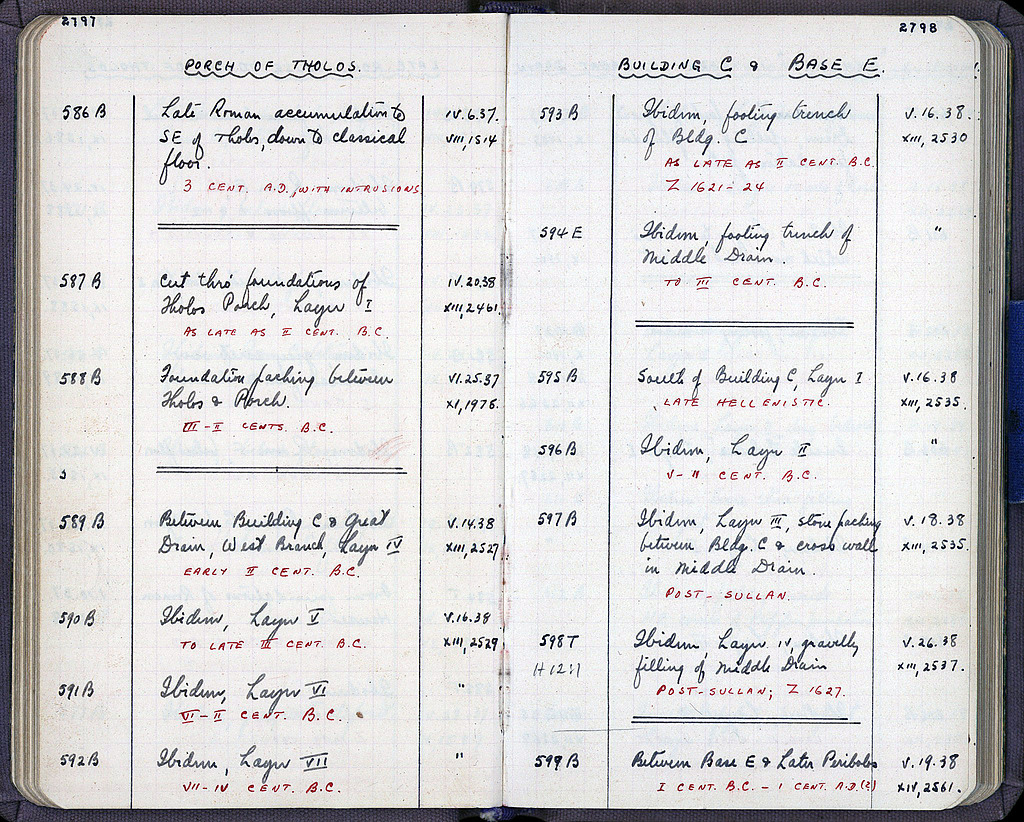 2797
PORCH OF THOLOS.
586 B Late Roman accumulation to IV.6.37.
SE of Tholos, down to classical VIII, 1514
floor.
3 CENT. A.D., WITH INTRUSIONS
587 B Cut thro' foundations of IV.20.38
Tholos Porch, Layer I XIII, 2461.
AS LATE AS II CENT. B.C
588 B Foundation packing between VI.25.37
Tholos & Porch. XI, 1976.
III-II CENTS. B.C.
589 B Between Building C & Great V.14.38
Drain, West Branch, Layer IV XIII, 2527
EARLY II CENT. B.C.
590 B Ibidem, Layer V V.16.38
TO LATE III CENT. B.C. XIII, 2529
591 B Ibidem, Layer VI "
VI-II CENT. B.C.
592 B Ibidem, Layer VII "
VII-IV CENT. B.C.
2798
BUILDING C & BASE E.
593 B Ibidem, footing trench V.16.38.
of Bldg. C XIII, 2530
AS LATE AS II CENT. B.C.
Z 1621-24
594 E Ibidem, footing trench of "
Middle Drain.
TO III CENT. B.C.
595 B South of Building C, Layer I V.16.38
LATE HELLENISTIC. XIII, 2535.
596 B Ibidem, Layer II "
V-II CENT. B.C.
597 B Ibidem, Layer III, stone packing V.18.38
between Bldg. C & cross wall XIII, 2535.
in Middle Drain.
POST-SULLAN.
598 T Ibidem, Layer IV, gravelly V.26.38
H 12:1 filling of Middle Drain XIII, 2537.
POST-SULLAN; Z 1627.
599 B Between Base E & Later Peribolos V.19.38
I CENT. B.C. - I CENT. A.D.(?) XIV, 2561.